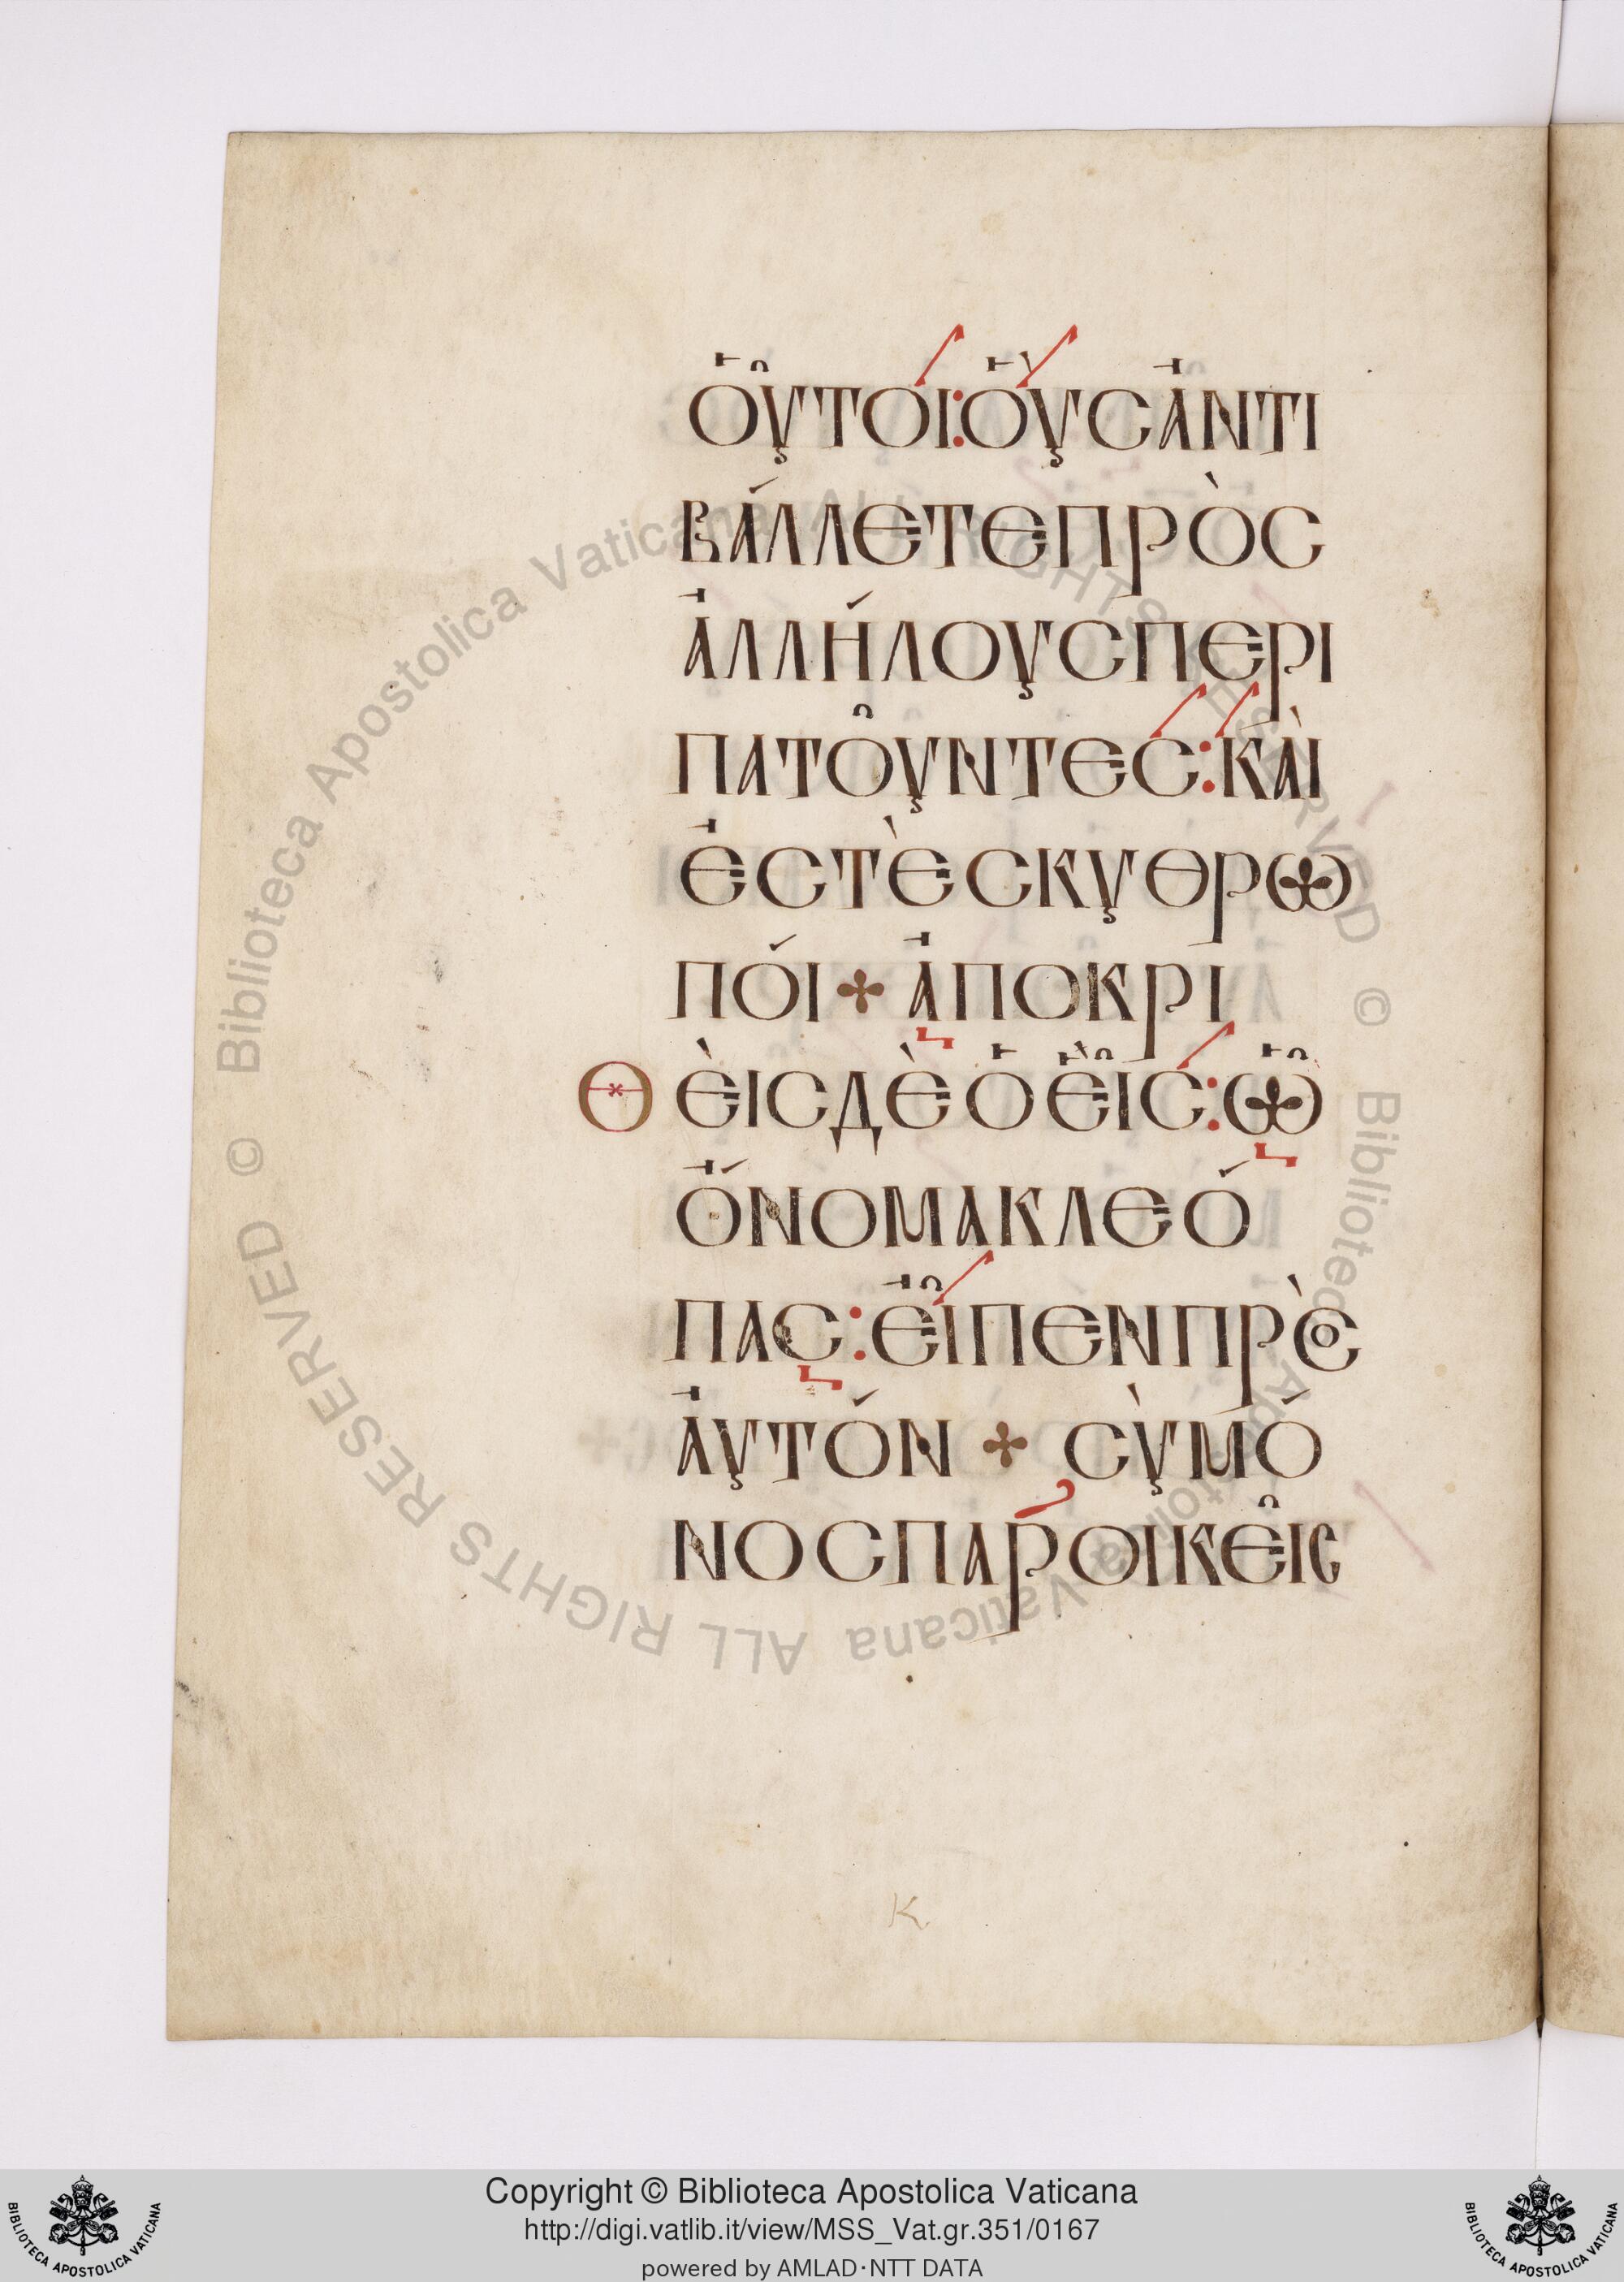 ὉῦΤΟΙ:ὉὺϹἈΝΤΙ
ΒΆΛΛΕΤΕΠΡῸϹ
ἈΛΛΉΛΟΥϹΠΕΡΙ
ΠΑΤΟῦΝΤΕϹ:ΚΑῚ
ἘϹΤῈϹΚΥΘΡΩ
ΠΌΙ + ἈΠΟΚΡΙ
Θ ῈΙϹΔῈὉἙῖϹ:ὯΙ
ὌΝΟΜΑΚΛΕΌ
ΠΑϹ:ΕἾΠΕΝΠΡῸϹ
ἈΥΤΌΝ + ϹῪΜΌ
ΝΟϹΠΑΡΟΙΚΕῖϹ
Κ
© Biblioteca Apostolica Vaticana ALL RIGHTS RESERVED © Biblioteca Apostolica Vaticana ALL RIGHTS RESERVED
Copyright © Biblioteca Apostolica Vaticana
http://digi.vatlib.it/view/MSS_Vat.gr.351/0167
powered by AMLAD·NTT DATA
BIBLIOTECA APOSTOLICA VATICANA
BIBLIOTECA APOSTOLICA VATICANA